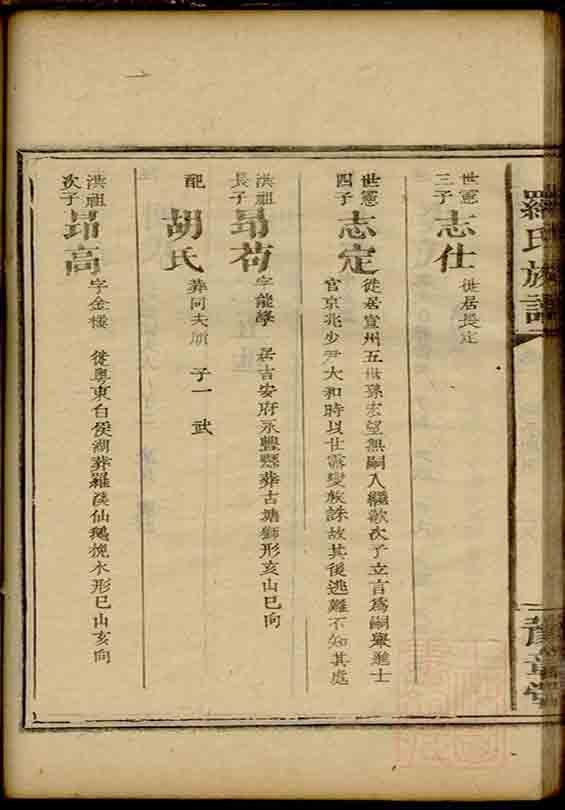 羅氏族譜
豫章堂
世憲三子 志仕 徙居長定
世憲四子 志定 徙居宣州五世孫宏望無嗣入繼歙次子立言為嗣舉進士
官京兆少尹大和時以甘露變族誅故其後逃難不知其處
洪祖長子 昂荷 字能學 居吉安府永豐縣葬古塘獅形亥山巳向
配 胡氏 葬同夫廚 子一 武
洪祖次子 昂高 字金樓 從粵東白侯湖葬羅溪仙鵝挽水形巳山亥向